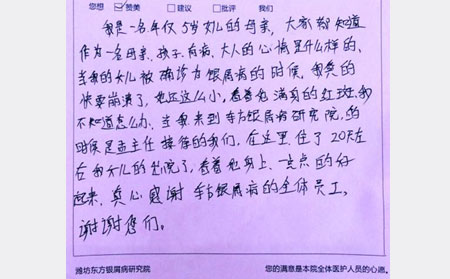 您想 ☑赞美 □建议 □批评 我们
我是一名年仅5岁女儿的母亲，大家都知道
作为一名母亲，孩子有病，大人的心情是什么样的，
当我的女儿被确诊为银屑病的时候，我真的
快要崩溃了，她还这么小，看着她满身的红斑，我
不知道怎么办，当我来到东方银屑病研究院，的
时候是孟主任接待的我们，在这里住了20天左
右我女儿的出院了，看着她身上一点点的好
起来，真心感谢东方银屑病的全体员工，
谢谢您们。
潍坊东方银屑病研究院 您的满意是本院全体医护人员的心愿。